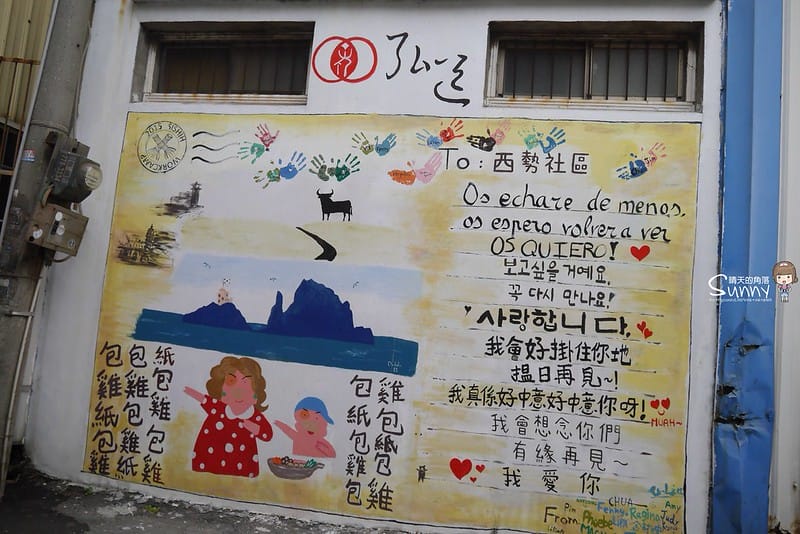 2015 XISHI
WORKCAMP
To：西勢社區
Os echare de menos,
os espero volver a ver
OS QUIERO!
보고싶을거예요.
꼭 다시 만나요!
사랑합니다.
我會好掛住你地
搵日再見~!
我真係好中意好中意你呀!
MUAH~
我會想念你們
有緣再見~
我愛你
包包紙
雞雞包
紙包雞
包雞包
雞紙雞
包雞
紙包
包紙
雞包
包雞
From
CHUA
Fenny
Regina
Phoebe
Amy
Judy
晴天的角落
Sunny